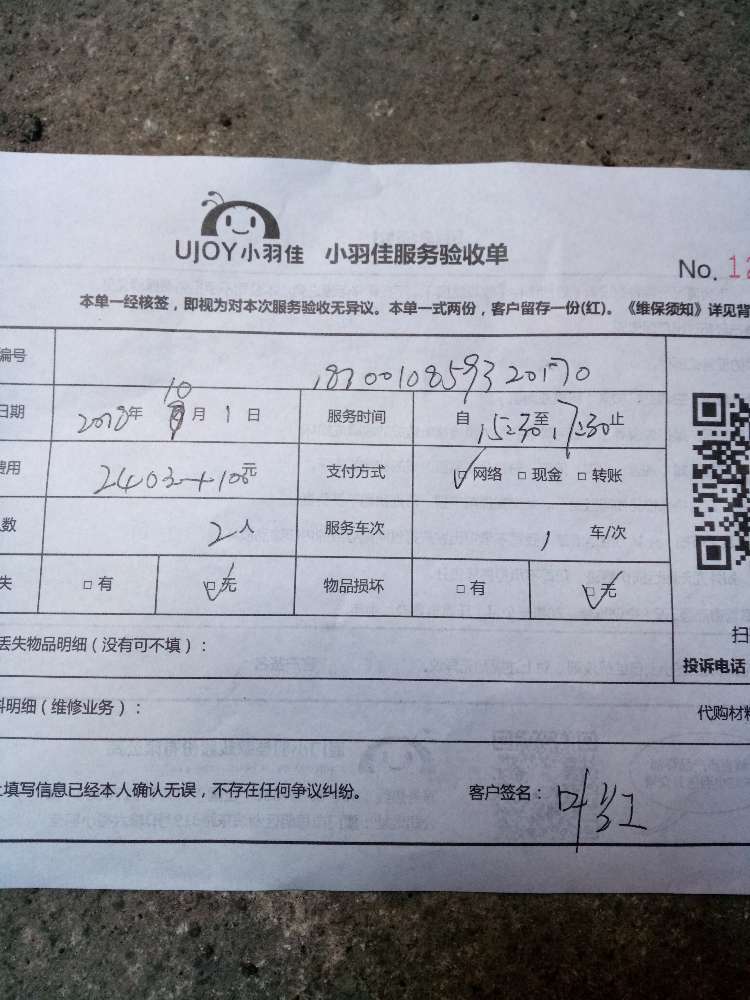 UJOY小羽佳 小羽佳服务验收单
No. 12
本单一经核签，即视为对本次服务验收无异议。本单一式两份，客户留存一份(红)。《维保须知》详见背
编号 1870010859320170
日期 2018年 10月 1日 服务时间 自 15:30至 17:30止
费用 2403+100元 支付方式 □网络 □现金 □转账
数 2人 服务车次 1 车/次
失 □有 □无 物品损坏 □有 □无
扫
丢失物品明细（没有可不填）：
投诉电话
料明细（维修业务）： 代购材料
上填写信息已经本人确认无误，不存在任何争议纠纷。 客户签名：叶红